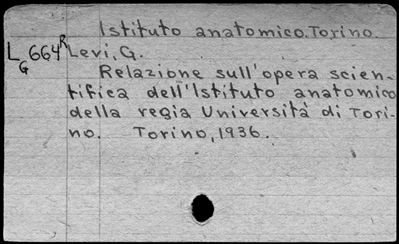 Istituto anatomico. Torino
LG664R Levi, G.
Relazione sull'opera scien-
tifica dell'Istituto anatomico
della regia Università di Tori-
no. Torino, 1936.